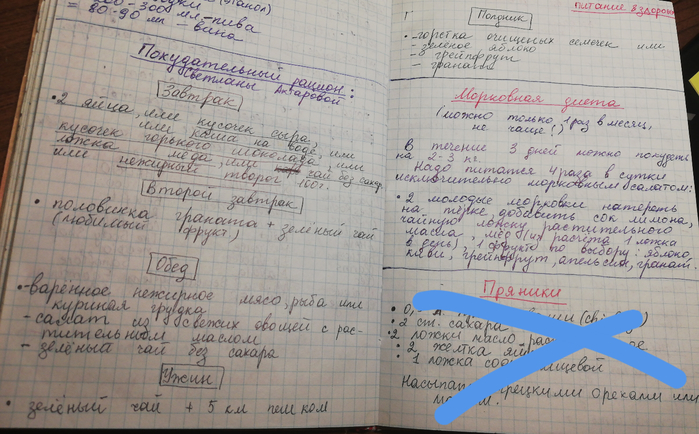 200-300 мл пива
= 80-90 мл - вина
Похудательный рацион:
Светланы Ахтаровой
Завтрак
• 2 яйца, или кусочек сыра
кусочек или каша на воде, или
ложка горького шоколада или
или меда, или чай без сахар.
нежирный творог 100г.
Второй завтрак
• половинка граната + зеленый чай
(любимый фрукт)
Обед
•-варенное нежирное мясо, рыба или
куриная грудка
- салат из свежих овощей с рас-
тительным маслом
- зелёный чай без сахара
Ужин
• зелёный чай + 5 км пешком
Питание & здоровь
Полдник
• -горстка очищеных семочек или
- зеленое яблоко
- грейпфрут
- гранат
Морковная диета
(можно только 1 раз в месяц,
не чаще!)
В течение 3 дней можно похудеть
на 2-3 кг.
Надо питатся 4 раза в сутки
исключительно морковным салатом:
• 2 молодые морковки натереть
на терке, добавить сок лимона,
чайную ложку растительного
масла, мёд (из расчета 1 ложка
в день), 1 фрукт по выбору: яблоко,
киви, грейпфрут, апельсин, гранат.
Пряники
• 2 ст. сахара
• 2 ложки масло
• 2 желтка
• 1 ложка соды
Насыпат орехами или